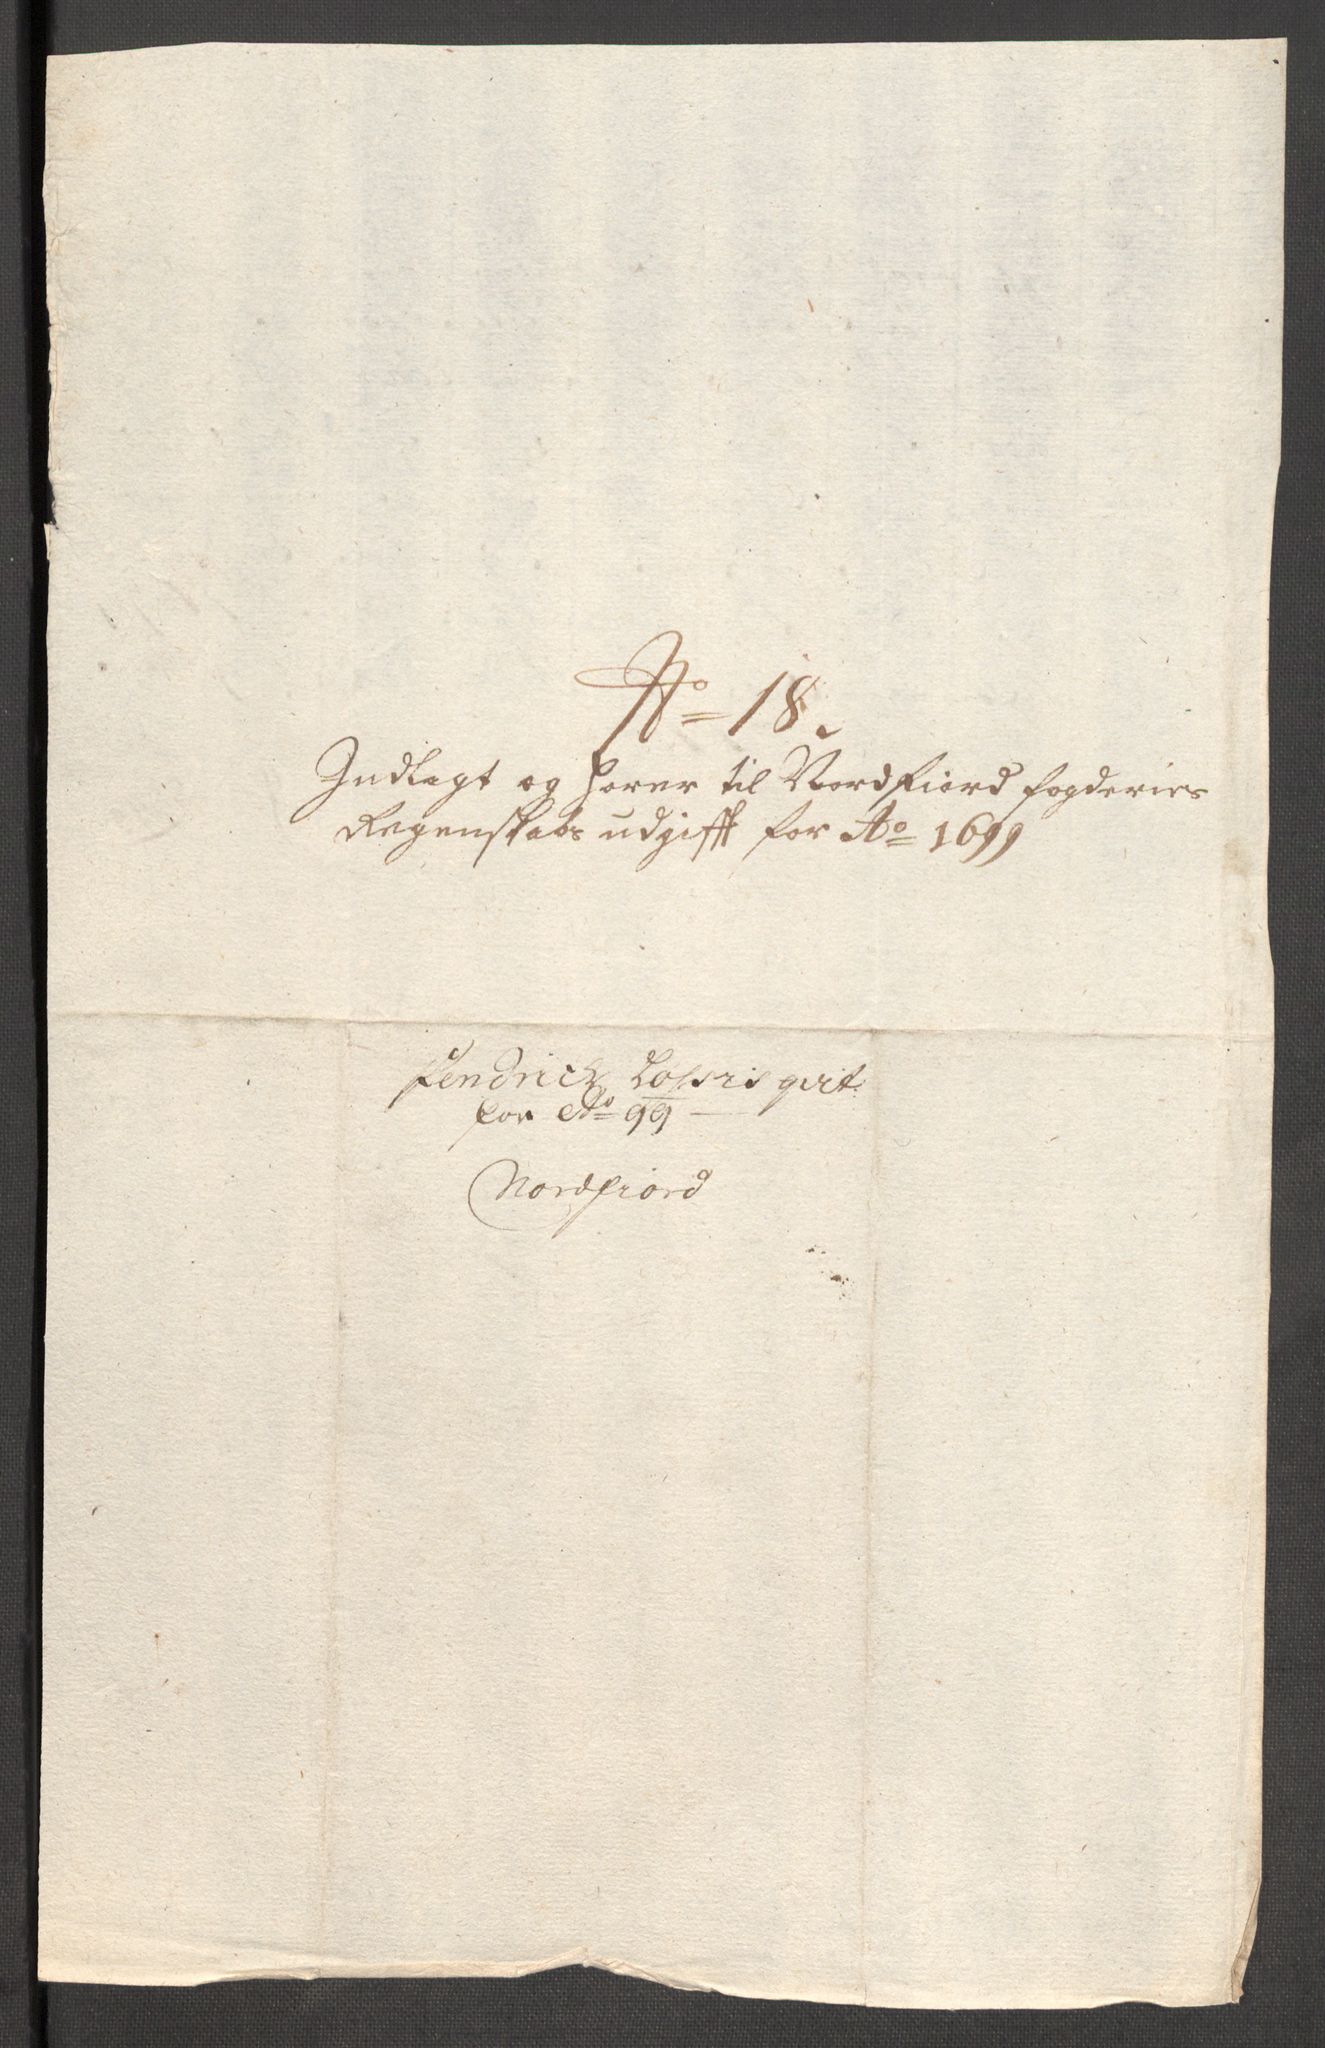 No 18.
Indlagt og hører til Nordfiord fogderies
Regenskabs udgifft for Ao 1699
Hendrich qvit
for Ao 99
Nordfiord